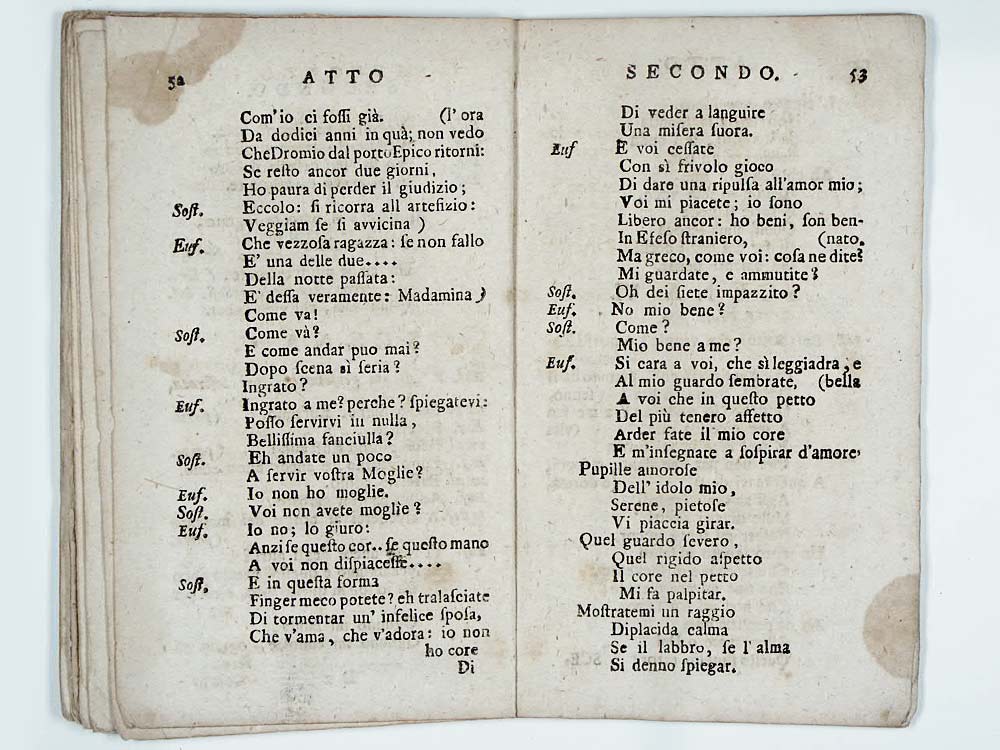 52 ATTO
Com'io ci foſſi già. (l' ora
Da dodici anni in quà; non vedo
CheDromio dal portoEpico ritorni:
Se reſto ancor due giorni,
Ho paura di perder il giudizio;
Soſt. Eccolo: ſi ricorra all artefizio:
Veggiam ſe ſi avvicina )
Euf. Che vezzoſa ragazza: ſe non fallo
E' una delle due....
Della notte paſſata:
E' deſſa veramente: Madamina )
Come va!
Soſt. Come và?
E come andar puo mai?
Dopo ſcena sì ſeria?
Ingrato?
Euf. Ingrato a me? perche? ſpiegatevi:
Poſſo ſervirvi in nulla,
Belliſſima fanciulla?
Soſt. Eh andate un poco
A ſervir voſtra Moglie?
Euf. Io non ho moglie.
Soſt. Voi non avete moglie?
Euf. Io no; lo giuro:
Anzi ſe queſto cor.. ſe queſto mano
A voi non diſpiaceſſe....
Soſt. E in queſta forma
Finger meco potete? eh tralaſciate
Di tormentar un' infelice ſpoſa,
Che v'ama, che v'adora: io non
ho core
Di
SECONDO. 53
Di veder a languire
Una miſera ſuora.
Euf E voi ceſſate
Con sì frivolo gioco
Di dare una ripulſa all'amor mio;
Voi mi piacete; io ſono
Libero ancor: ho beni, ſon ben-
In Efeſo ſtraniero, (nato.
Ma greco, come voi: coſa ne dite?
Mi guardate, e ammutite?
Soſt. Oh dei ſiete impazzito?
Euf. No mio bene?
Soſt. Come?
Mio bene a me?
Euf. Si cara a voi, che sì leggiadra, e
Al mio guardo ſembrate, (bella
A voi che in queſto petto
Del più tenero affetto
Arder fate il mio core
E m'inſegnate a ſoſpirar d'amore,
Pupille amoroſe
Dell' idolo mio,
Serene, pietoſe
Vi piaccia girar.
Quel guardo ſevero,
Quel rigido aſpetto
Il core nel petto
Mi fa palpitar.
Moſtratemi un raggio
Diplacida calma
Se il labbro, ſe l'alma
Si denno ſpiegar.
SCE.